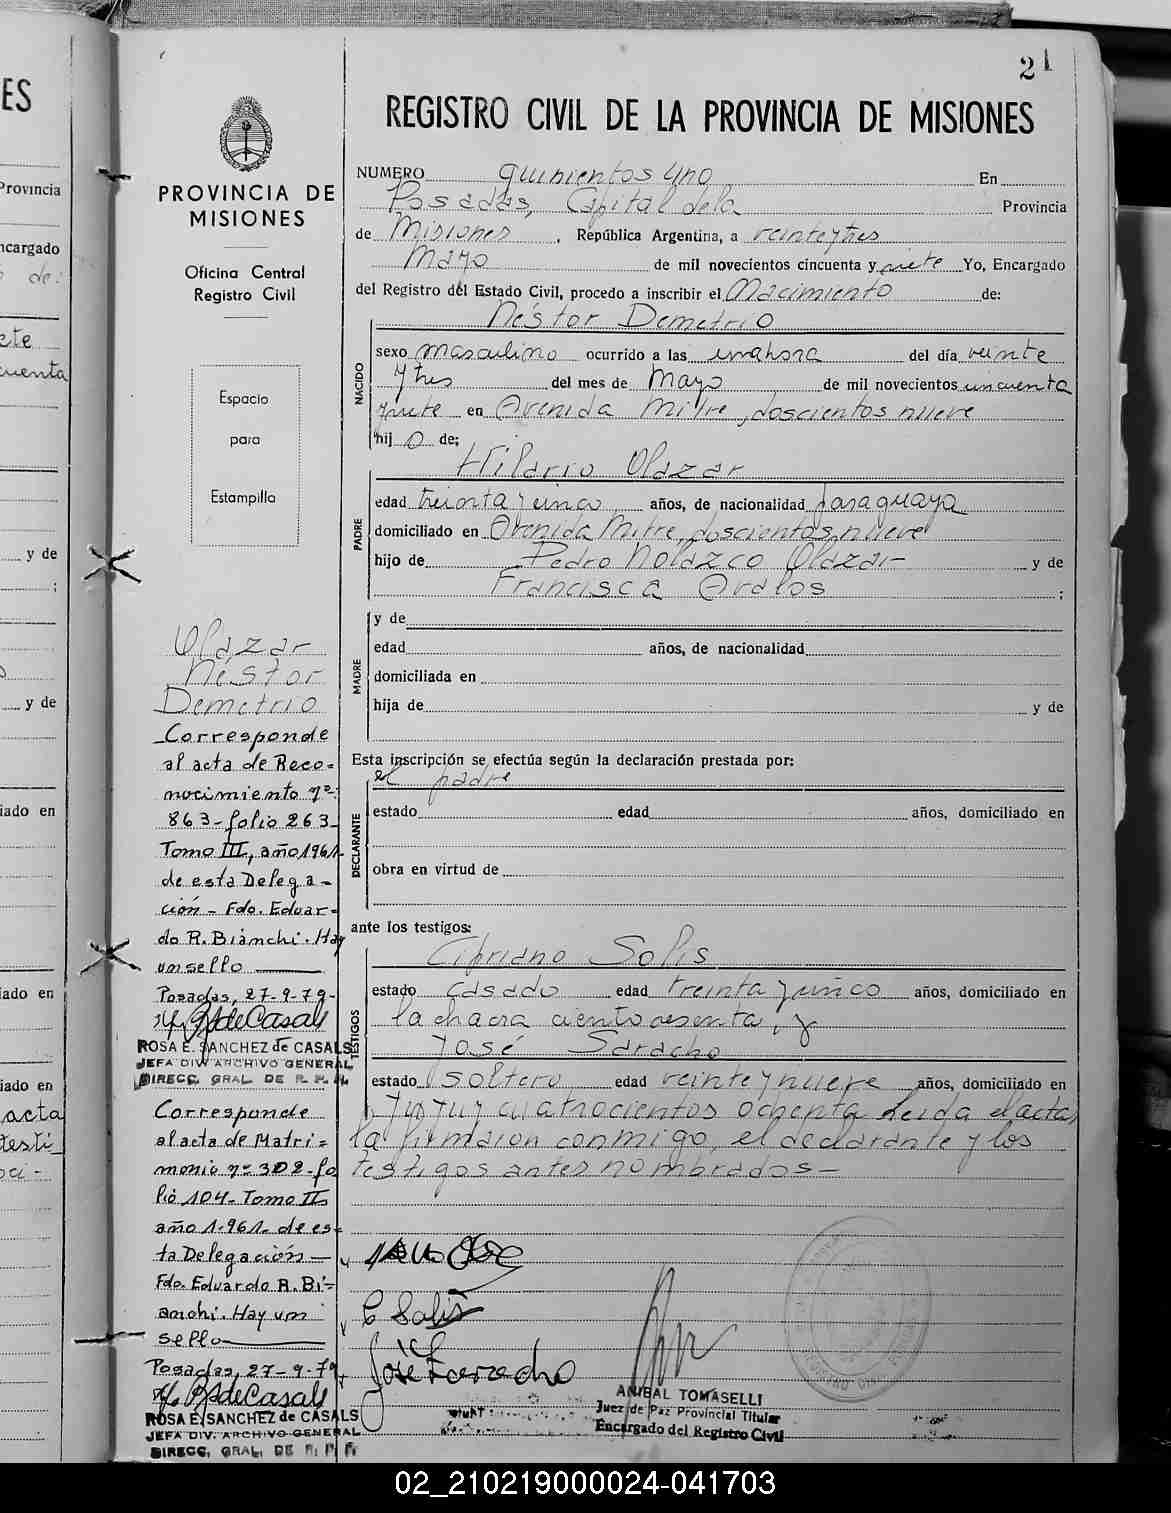 21
REGISTRO CIVIL DE LA PROVINCIA DE MISIONES
NUMERO quinientos uno En
Posadas, Capital dela Provincia
de Misiones, República Argentina, a veinteytres
Mayo de mil novecientos cincuenta y siete Yo, Encargado
del Registro del Estado Civil, procedo a inscribir el Nacimiento de:
NACIDO
Néstor Demetrio
sexo masculino ocurrido a las unahora del día veinte
ytres del mes de Mayo de mil novecientos cincuenta
ysiete en Avenida Mitre, doscientos nueve
hij o de;
PADRE
Hilario Olazar
edad treinta y cinco años, de nacionalidad paraguaya
domiciliado en Avenida Mitre, doscientos nueve
hijo de Pedro Nolazco Olazar y de
Francisca Avalos ;
MADRE
y de
edad años, de nacionalidad
domiciliada en
hija de y de
Esta inscripción se efectúa según la declaración prestada por:
DECLARANTE
el padre
estado edad años, domiciliado en
obra en virtud de
ante los testigos:
TESTIGOS
Cipriano Solis
estado casado edad treinta y cinco años, domiciliado en
la chacra ciento sesenta, y
José Saracho
estado soltero edad veinteynueve años, domiciliado en
Jujuy cuatrocientos ochenta Leida el acta,
la firmaron conmigo, el declarante y los
testigos antes nombrados-
C Solis
José Saracho
ANIBAL TOMASELLI
Juez de Paz Provincial Titular
Encargado del Registro Civil
PROVINCIA DE
MISIONES
Oficina Central
Registro Civil
Espacio
para
Estampilla
Olazar
Néstor
Demetrio
Corresponde
al acta de Reco=
nocimiento nº
863-folio 263-
Tomo III, año 1961-
de esta Delega-
ción- Fdo. Eduar=
do R. Bianchi. Hay
un sello
Posadas, 27-9-79-
ROSA E. SANCHEZ de CASALS
JEFA DIV. ARCHIVO GENERAL
DIRECC. GRAL. DE R. P. P.
Corresponde
al acta de Matri=
monio nº 302-fo
lio 104-Tomo II
año 1.961- de es-
ta Delegación-
Fdo. Eduardo R. Bi=
anchi. Hay un
sello
Posadas, 27-9-79
ROSA E. SANCHEZ de CASALS
JEFA DIV. ARCHIVO GENERAL
DIRECC. GRAL. DE R. P. P.
ES
Provincia
ncargado
de:
y de
;
y de
iado en
iado en
iado en
acta
testi
02_210219000024-041703